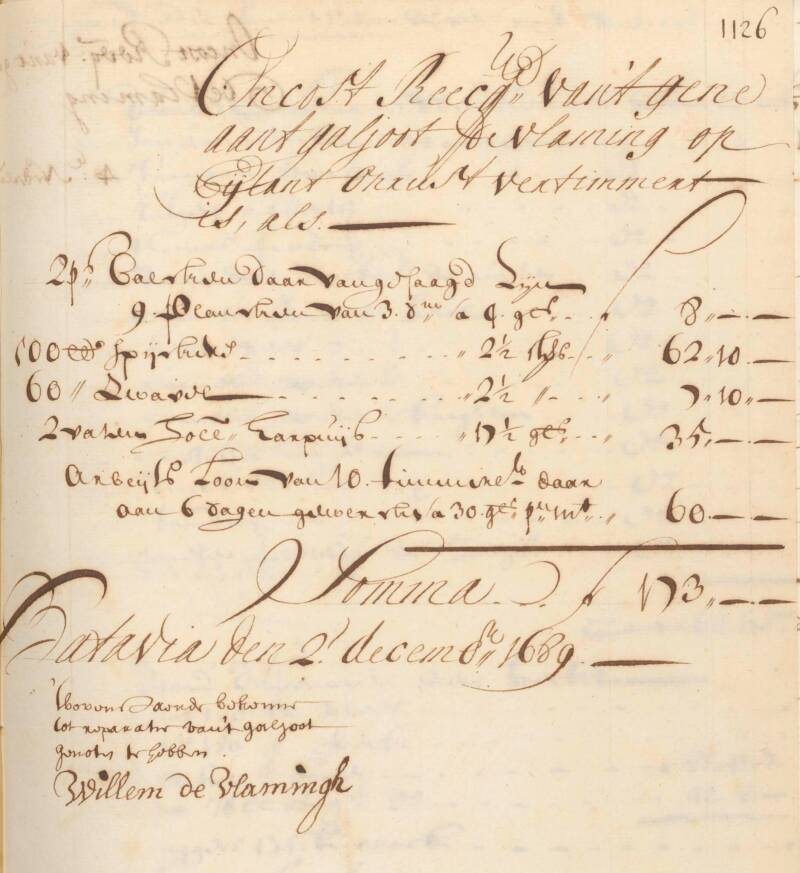 1126
Oncost Reecq„ van't gene
aant galjoot de vlaming op
Eijlant Onrust vertimmert
is, als.
2 p„s Balken daar van gesaagd Zijn
9 Plancken van 3. d„m a 4. gls 8„—„—
500 lb spijkers „ 2½ „ 62„10„—
60 „ Swarde „ 2½ „ 7„10„—
2 vaten harpuijs „ 17½ gls „ 35„—„—
Arbeijts Loon van 10. timmerl„s daar
aan 6 dagen gewerkt a 30. gls p„r m„t „ 60„—„—
Somma ƒ 173„—„—
Batavia den 2„e decemb„r 1689.
Bovenstaende bekenne
tot reparatie van't galjoot
genoten te hebben.
Willem de Vlamingh